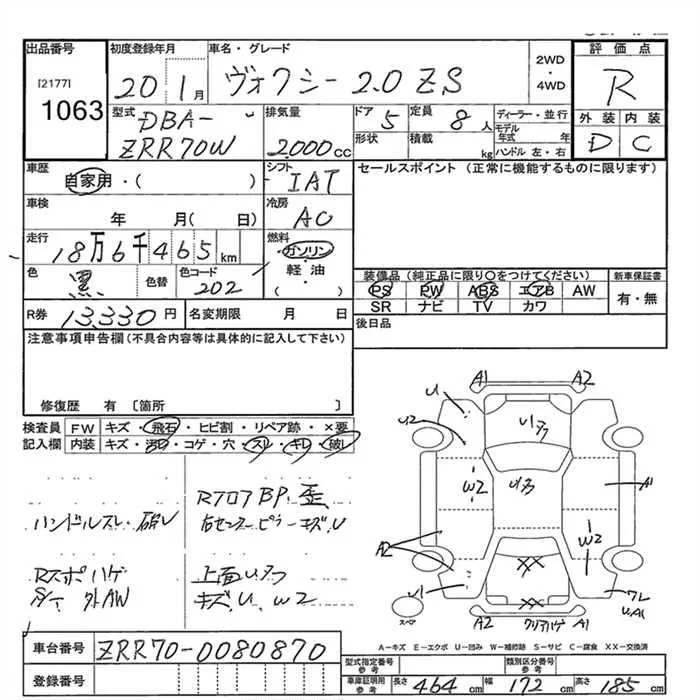 出品番号
[2177]
1063
初度登録年月
20 1月
車名・グレード
ヴォクシー 2.0 ZS
2WD
・
4WD
評価点
R
外装 内装
D C
型式
DBA-
ZRR70W
排気量
2,000cc
ドア
5
形状
定員
8人
積載
kg
ディーラー・並行
モデル
年式 年
ハンドル 左・右
車歴
自家用・( )
シフト
IAT
車検
年 月( 日)
冷房
AC
走行
18万6千465km
燃料
ガソリン
・
軽油
( )
色
黒
色替
色コード
202
R券
13,330円
名変期限 月 日
セールスポイント (正常に機能するものに限ります)
装備品(純正品に限り○をつけてください)
PS PW ABS エアB AW
SR ナビ TV カワ
新車保証書
有・無
後日品
注意事項申告欄(不具合内容等は具体的に記入して下さい)
修復歴 有〔箇所 〕
検査員
記入欄
FW キズ・飛石・ヒビ割・リペア跡・×要
内装 キズ・汚れ・コゲ・穴・スレ・キレ・破レ
ハンドルスレ・破レ
Rスポハゲ
S/T 外AW
Rフロア BP.歪
右センターピラーキズ.U
上面U.ヌワ
キズ.U.W2
A1 A2
U
U2
W2
A1
W2
A2
U1
××
××
スペア
A2 クリアハゲ A1
ワレ
U.A1
A－キズ E－エクボ U－凹み W－補修跡 S－サビ C－腐食 XX－交換済
車台番号
ZRR70-0080870
登録番号
型式指定番号
参考
類別区分番号
参考
車庫証明用
参考
長さ 464cm 幅 172cm 高さ 185cm